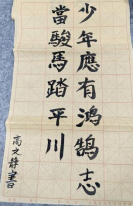 少年應有鴻鵠志
當駿馬踏平川
高文静書